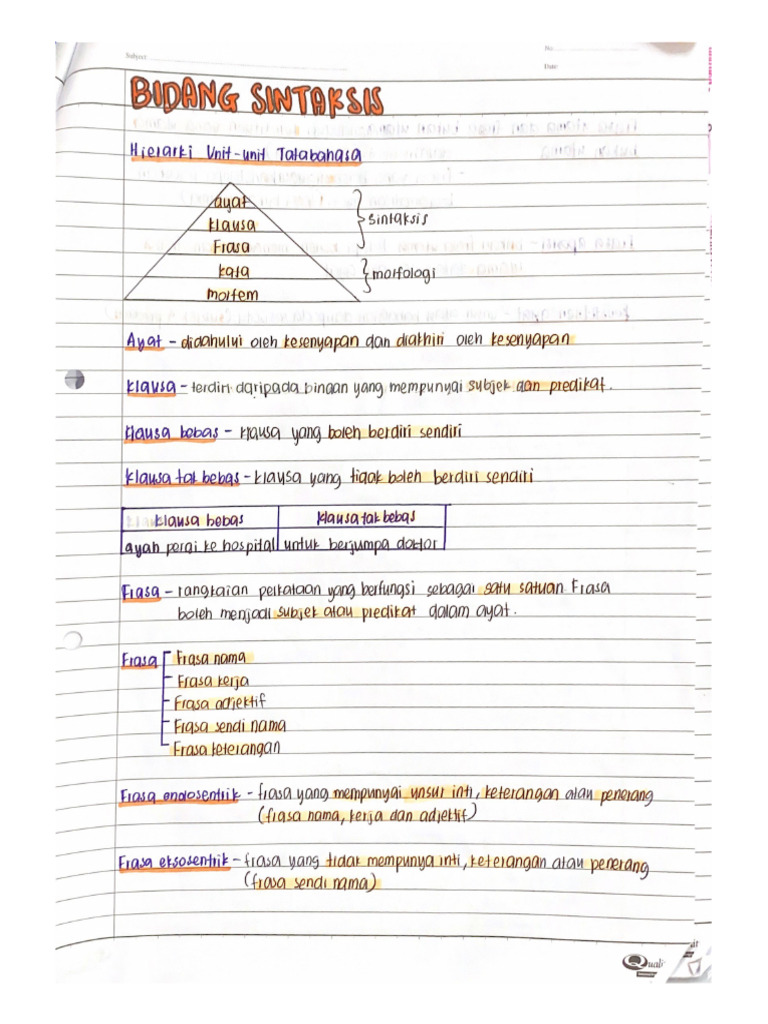 Subject
No
Date:
BIDANG SINTAKSIS
Hierarki Unit-unit Tatabahasa
ayat
klausa
Frasa
kata
morfem
sintaksis
morfologi
Ayat - didahului oleh kesenyapan dan diakhiri oleh kesenyapan
Klausa - terdiri daripada binaan yang mempunyai subjek dan predikat.
Klausa bebas - klausa yang boleh berdiri sendiri
Klausa tak bebas - klausa yang tidak boleh berdiri sendiri
Klausa bebas Klausa tak bebas
ayah pergi ke hospital untuk berjumpa doktor
Frasa - rangkaian perkataan yang berfungsi sebagai satu satuan. Frasa
boleh menjadi subjek atau predikat dalam ayat.
Frasa
Frasa nama
Frasa kerja
Frasa adjektif
Frasa sendi nama
Frasa keterangan
Frasa endosentrik - frasa yang mempunyai unsur inti, keterangan atau penerang
(frasa nama, kerja dan adjektif)
Frasa eksosentrik - frasa yang tidak mempunya inti, keterangan atau penerang
(frasa sendi nama)
Quali